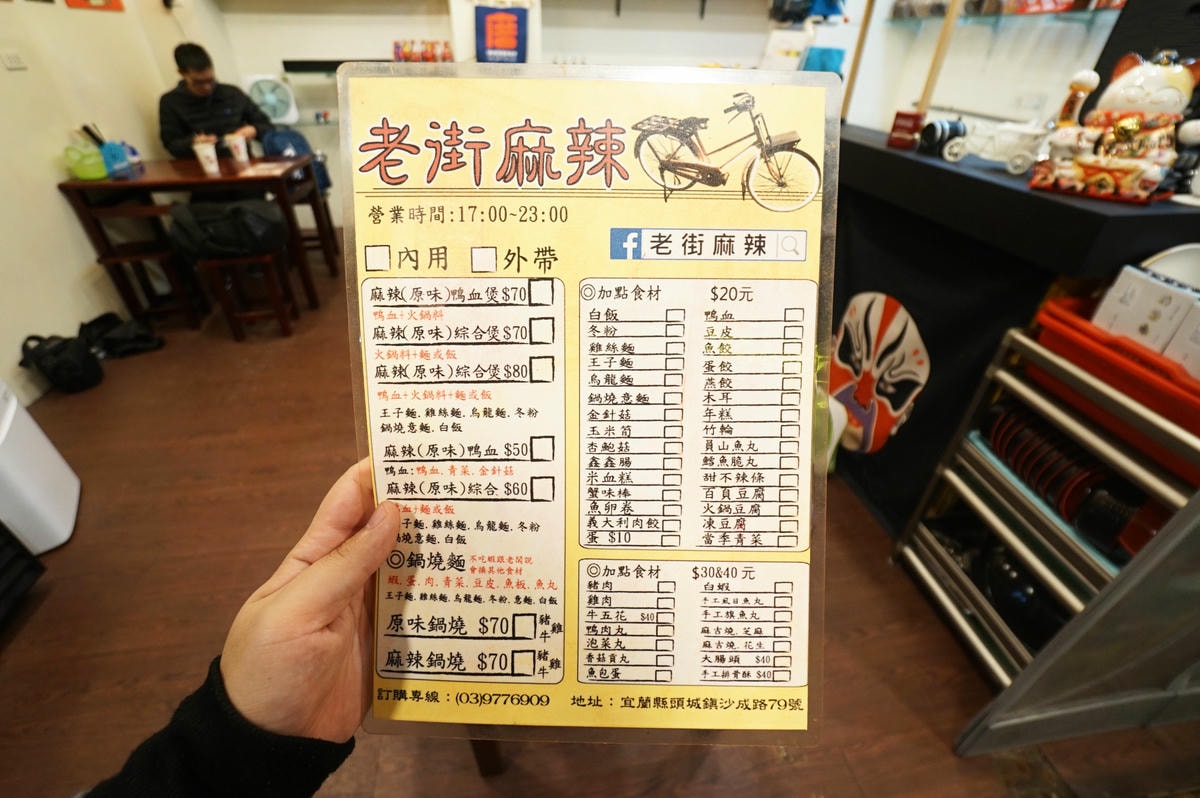 老街麻辣
營業時間:17:00~23:00
老街麻辣
內用 外帶
麻辣(原味)鴨血煲$70
鴨血+火鍋料
麻辣(原味)綜合煲$70
火鍋料+麵或飯
麻辣(原味)綜合煲$80
鴨血+火鍋料+麵或飯
王子麵.雞絲麵.烏龍麵.冬粉
鍋燒意麵.白飯
麻辣(原味)鴨血 $50
鴨血:鴨血.青菜.金針菇
麻辣(原味)綜合 $60
血+麵或飯
子麵.雞絲麵.烏龍麵.冬粉
燒意麵.白飯
◎鍋燒麵
不吃蝦跟老闆說
會換其他食材
蝦.蛋.肉.青菜.豆皮.魚板.魚丸
王子麵.雞絲麵.烏龍麵.冬粉.意麵.白飯
原味鍋燒 $70 豬 雞 牛
麻辣鍋燒 $70 豬 雞 牛
◎加點食材 $20元
白飯
冬粉
雞絲麵
王子麵
烏龍麵
鍋燒意麵
金針菇
玉米筍
杏鮑菇
鑫鑫腸
米血糕
蟹味棒
魚卵卷
義大利肉餃
蛋 $10
鴨血
豆皮
魚餃
蛋餃
燕餃
木耳
年糕
竹輪
員山魚丸
鱈魚脆丸
甜不辣條
百頁豆腐
火鍋豆腐
凍豆腐
當季青菜
◎加點食材 $30&40 元
豬肉
雞肉
牛五花 $40
鴨肉丸
泡菜丸
香菇貢丸
魚包蛋
白蝦
手工虱目魚丸
手工旗魚丸
麻古燒.芝麻
麻古燒.花生
大腸頭 $40
手工排骨酥 $40
訂購專線：(03)9776909 地址：宜蘭縣頭城鎮沙成路79號